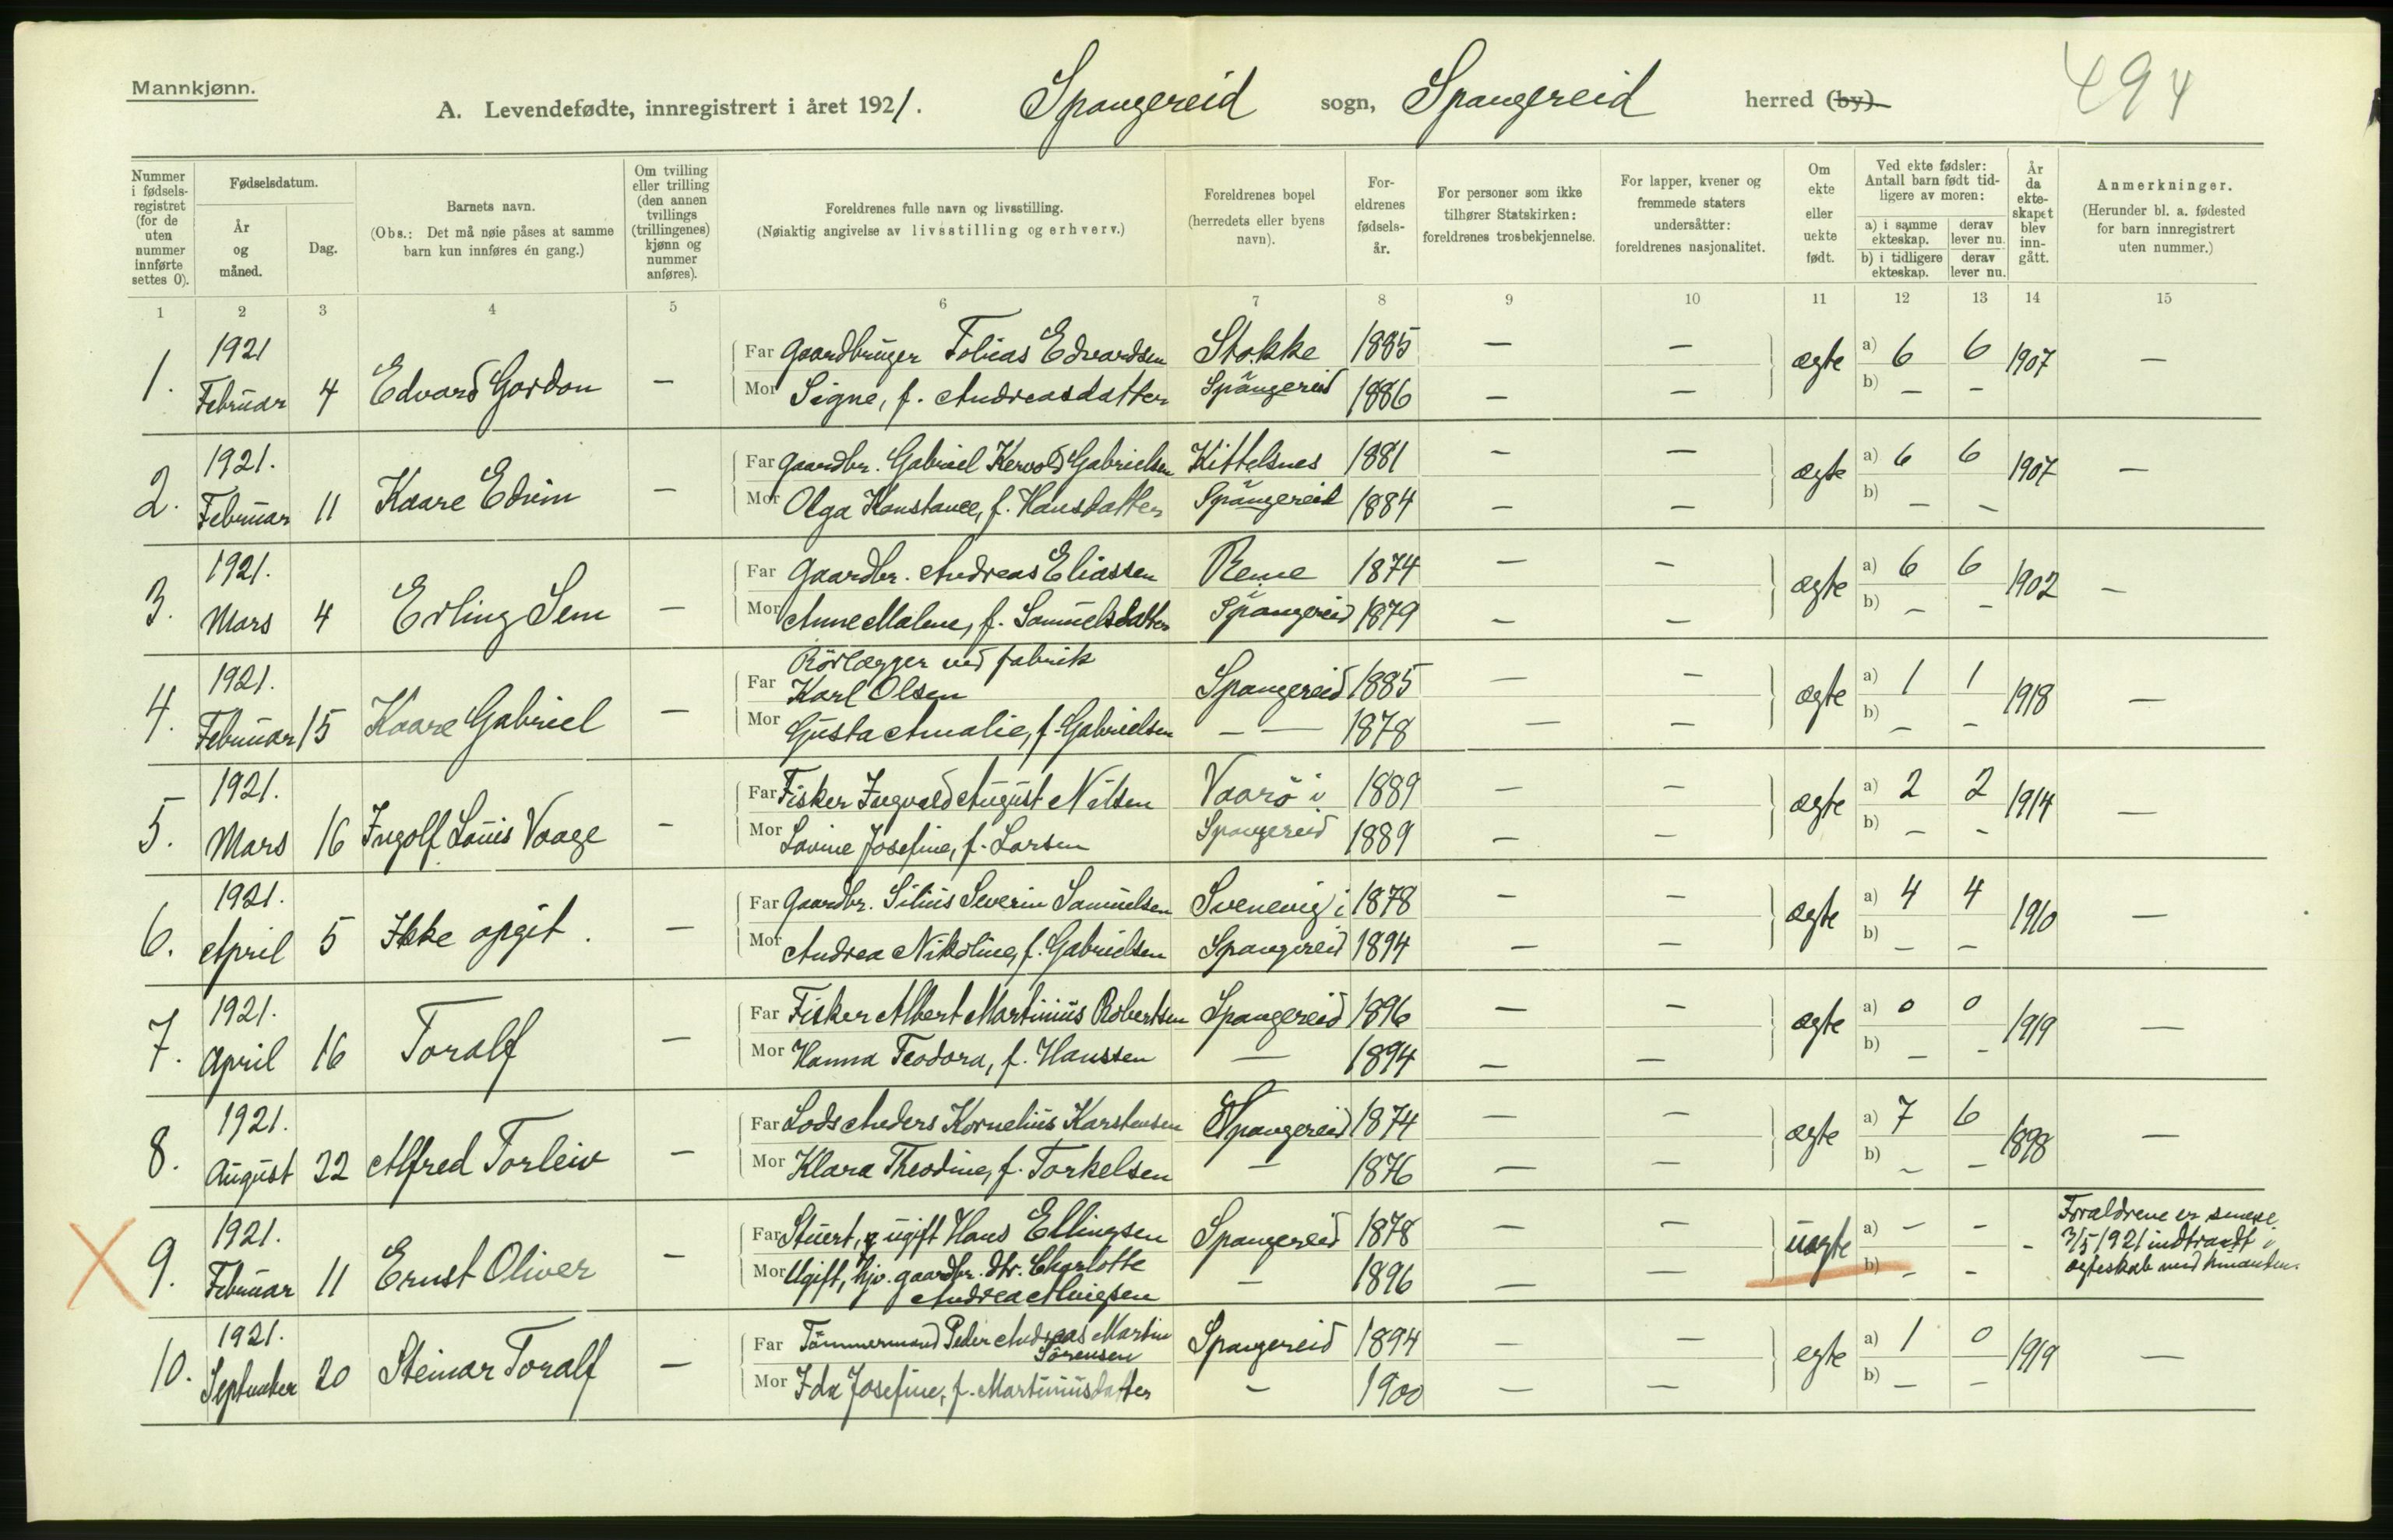 Mannkjønn.
A. Levendefødte, innregistrert i året 1921. Spangereid sogn, Spangereid herred (by) 494
Nummer i fødselsregistret (for de uten nummer innførte settes 0).
Fødselsdatum.
År og måned.
Dag.
Barnets navn.
(Obs.: Det må nøie påses at samme barn kun innføres én gang.)
Om tvilling eller trilling (den annen tvillings (trillingenes) kjønn og nummer anføres).
Foreldrenes fulle navn og livsstilling.
(Nøiaktig angivelse av livsstilling og erhverv.)
Foreldrenes bopel (herredets eller byens navn).
Foreldrenes fødselsår.
For personer som ikke tilhører Statskirken: foreldrenes trosbekjennelse.
For lapper, kvener og fremmede staters undersåtter: foreldrenes nasjonalitet.
Om ekte eller uekte født.
Ved ekte fødsler: Antall barn født tidligere av moren:
a) i samme ekteskap. derav lever nu.
b) i tidligere ekteskap. derav lever nu.
År da ekteskapet blev inngått.
Anmerkninger.
(Herunder bl. a. fødested for barn innregistrert uten nummer.)
1 2 3 4 5 6 7 8 9 10 11 12 13 14 15
1921 Far Gaardbruger Tobias Edvardsen Stokke 1885 — — a) 6 6
1. Februar 4 Edvard Gordon — Mor Signe, f. Andreasdatter Spangereid 1886 — — ægte b) — — 1907 —
1921. Far Gaardbr. Gabriel Kervold Gabrielsen Kittelsnes 1881 — — a) 6 6
2. Februar 11 Kaare Edvin — Mor Olga Konstance, f. Hansdatter Spangereid 1884 — — ægte b) — — 1907 —
1921. Far Gaardbr. Andreas Eliassen Reme 1874 — — a) 6 6
3. Mars 4 Erling Sem — Mor Anne Malene, f. Samuelsdatter Spangereid 1879 — — ægte b) — — 1902 —
1921. Far Rörlægger ved fabrik
Karl Olsen Spangereid 1885 — — a) 1 1
4. Februar 15 Kaare Gabriel — Mor Gusta Amalie, f. Gabrielsen — — 1878 — — ægte b) — — 1918 —
1921. Far Fisker Ingvald August Nilsen Vaarö i 1889 — — a) 2 2
5. Mars 16 Ingolf Louis Vaage — Mor Lovine Josefine, f. Larsen Spangereid 1889 — — ægte b) — — 1914 —
1921. Far Gaardbr. Silius Severin Samuelsen Svenevig i 1878 — — a) 4 4
6. April 5 Ikke opgit. — Mor Andrea Nikoline, f. Gabrielsen Spangereid 1894 — — ægte b) — — 1910 —
1921. Far Fisker Albert Martinius Robertsen Spangereid 1896 — — a) 0 0
7. April 16 Toralf — Mor Hanna Teodora, f. Hanssen — 1894 — — ægte b) — — 1919 —
1921. Far Lods Anders Kornelius Karstensen Spangereid 1874 — — a) 7 6
8. August 22 Alfred Torleiv — Mor Klara Theodine, f. Torkelsen — 1876 — — ægte b) — — 1898 —
1921. Far Stuert, ugift Hans Ellingsen Spangereid 1878 — — a) — — Forældrene er senere
9. Februar 11 Ernst Oliver — Mor Ugift, hjv. gaardbr. dtr. Charlotte — 1896 — — uægte b) — — - 7/5 1921 indtraadt i
Andrea ægteskab med hinanden.
1921. Far Tömmermand Peder Andreas Martin
Sörensen Spangereid 1894 — — a) 1 0
10. September 20 Steinar Toralf — Mor Ida Josefine, f. Martiniusdatter — 1900 — — egte b) — — 1919 —